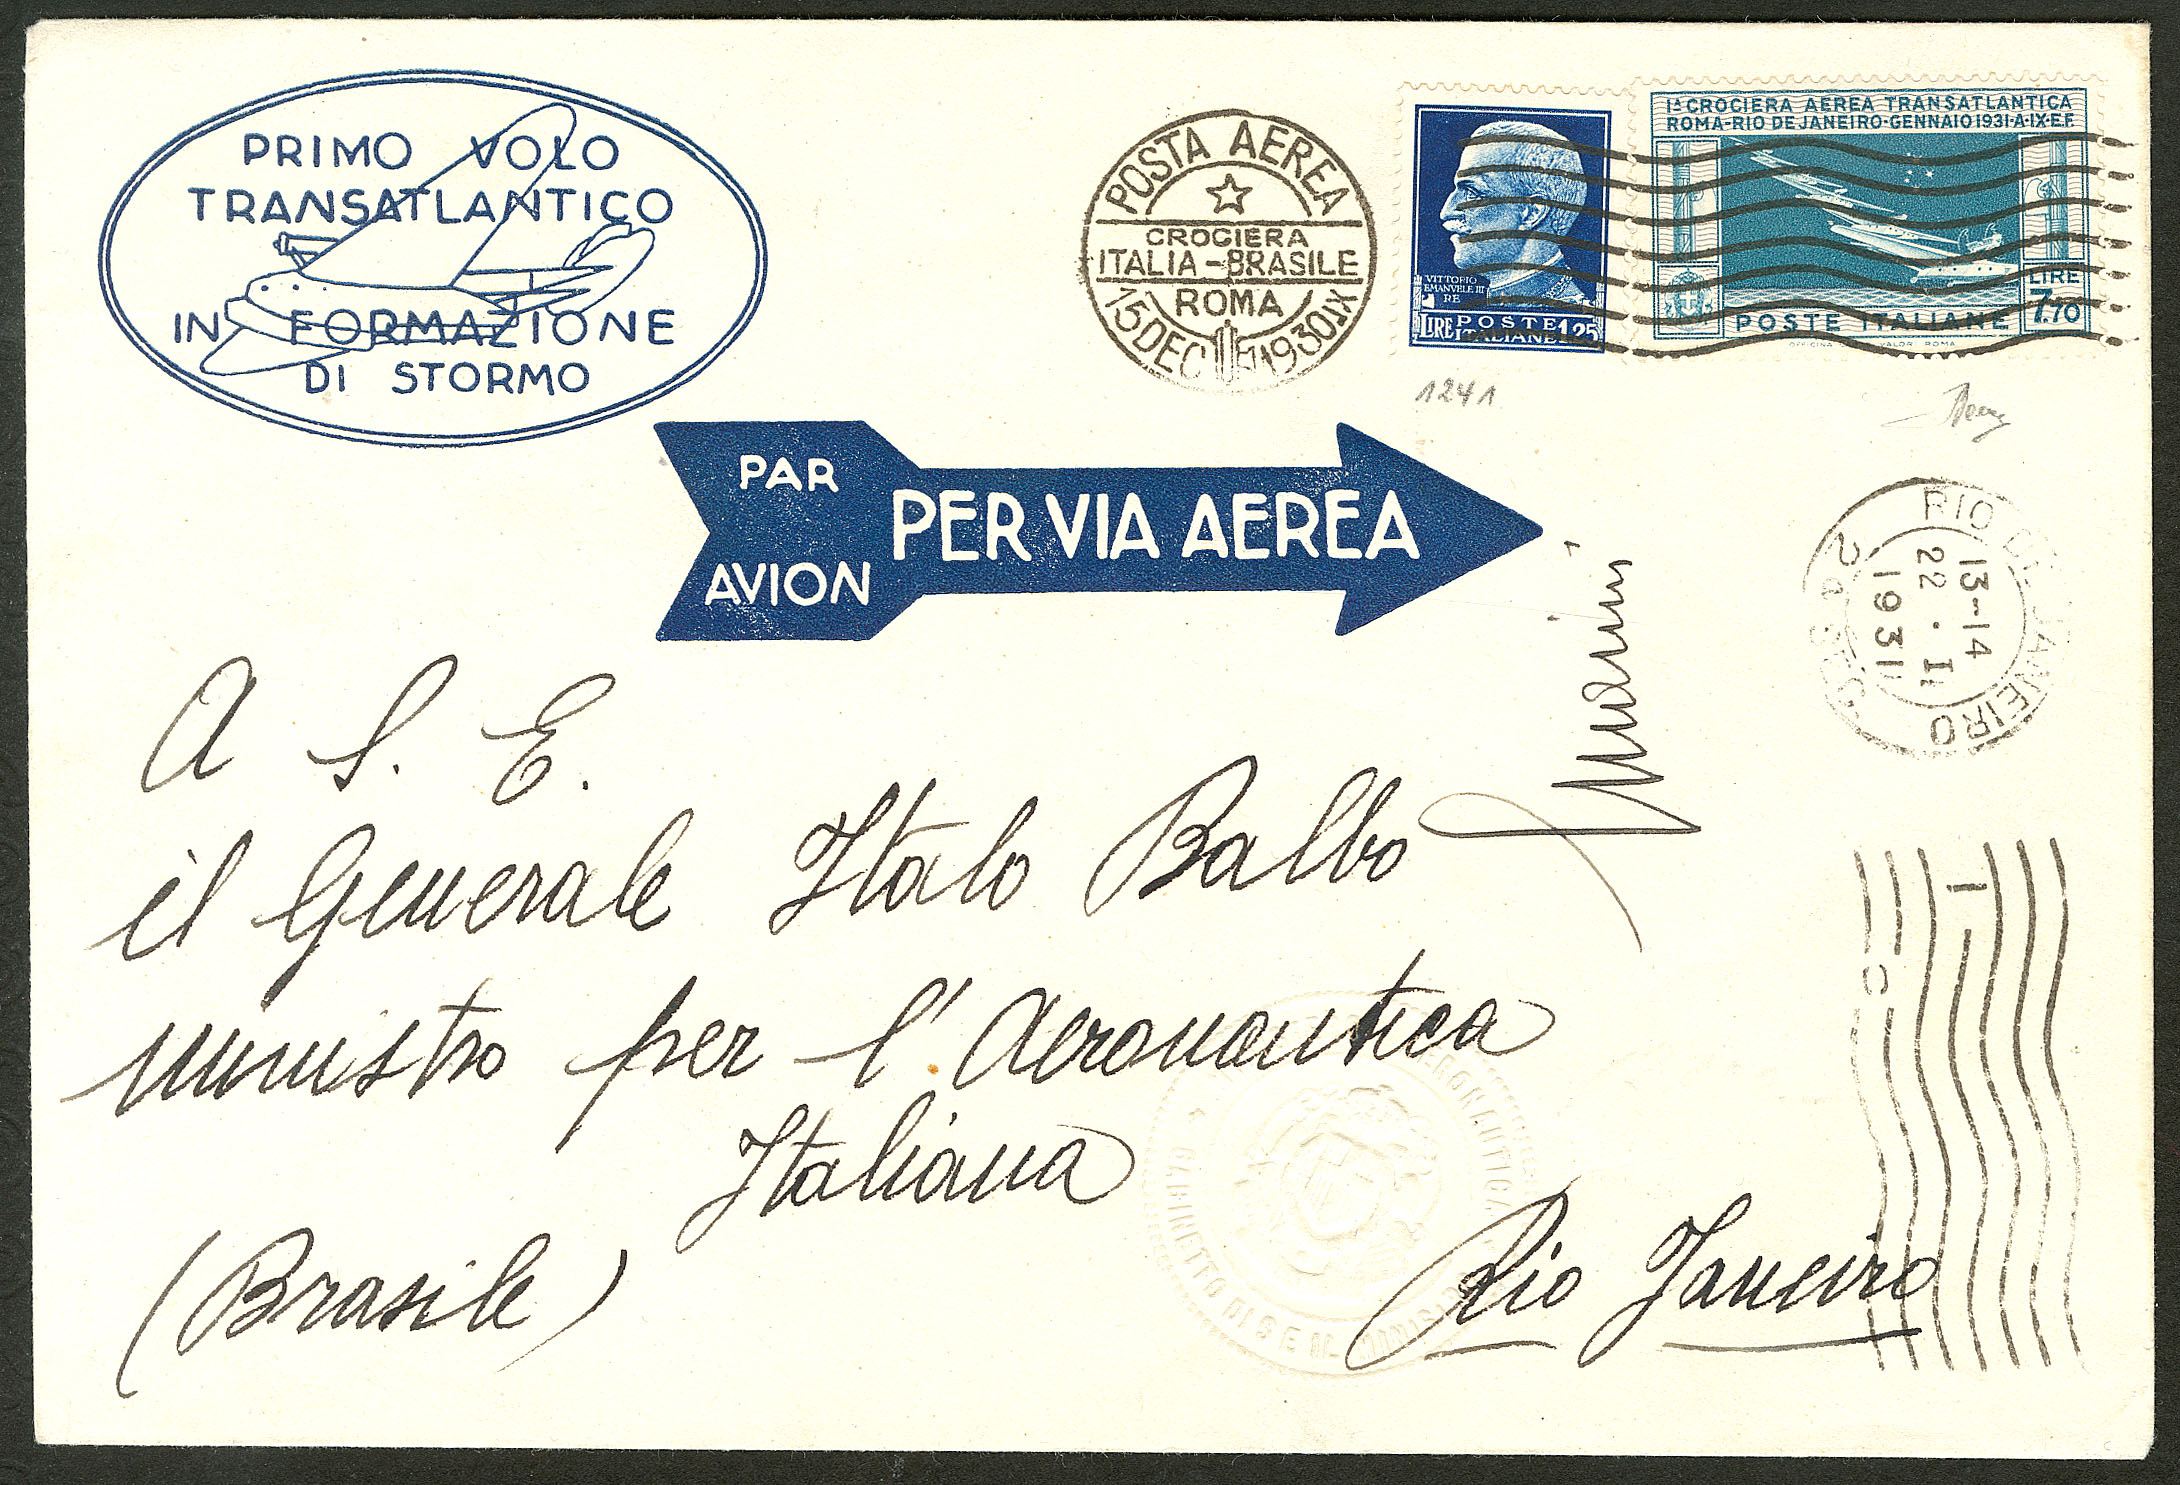 PRIMO VOLO
TRANSATLANTICO
IN FORMAZIONE
DI STORMO
POSTA AEREA
CROCIERA
ITALIA-BRASILE
ROMA
15 DEC 1930 IX
VITTORIO
EMANVELE III
RE
POSTE
LIRE ITALIANE 1.25
1ª CROCIERA AEREA TRANSATLANTICA
ROMA-RIO DE JANEIRO-GENNAIO 1931-A·IX·E.F.
LIRE
7.70
POSTE ITALIANE
VALOR ROMA
1241
PAR
AVION
PER VIA AEREA
RIO DE JANEIRO
13-14
22.I
1931
A S. E.
il Generale Italo Balbo
Ministro per l'Aeronautica
Italiana
(Brasile)
Rio Janeiro
AERONAUTICA
GABINETTO DI S E IL MINISTRO